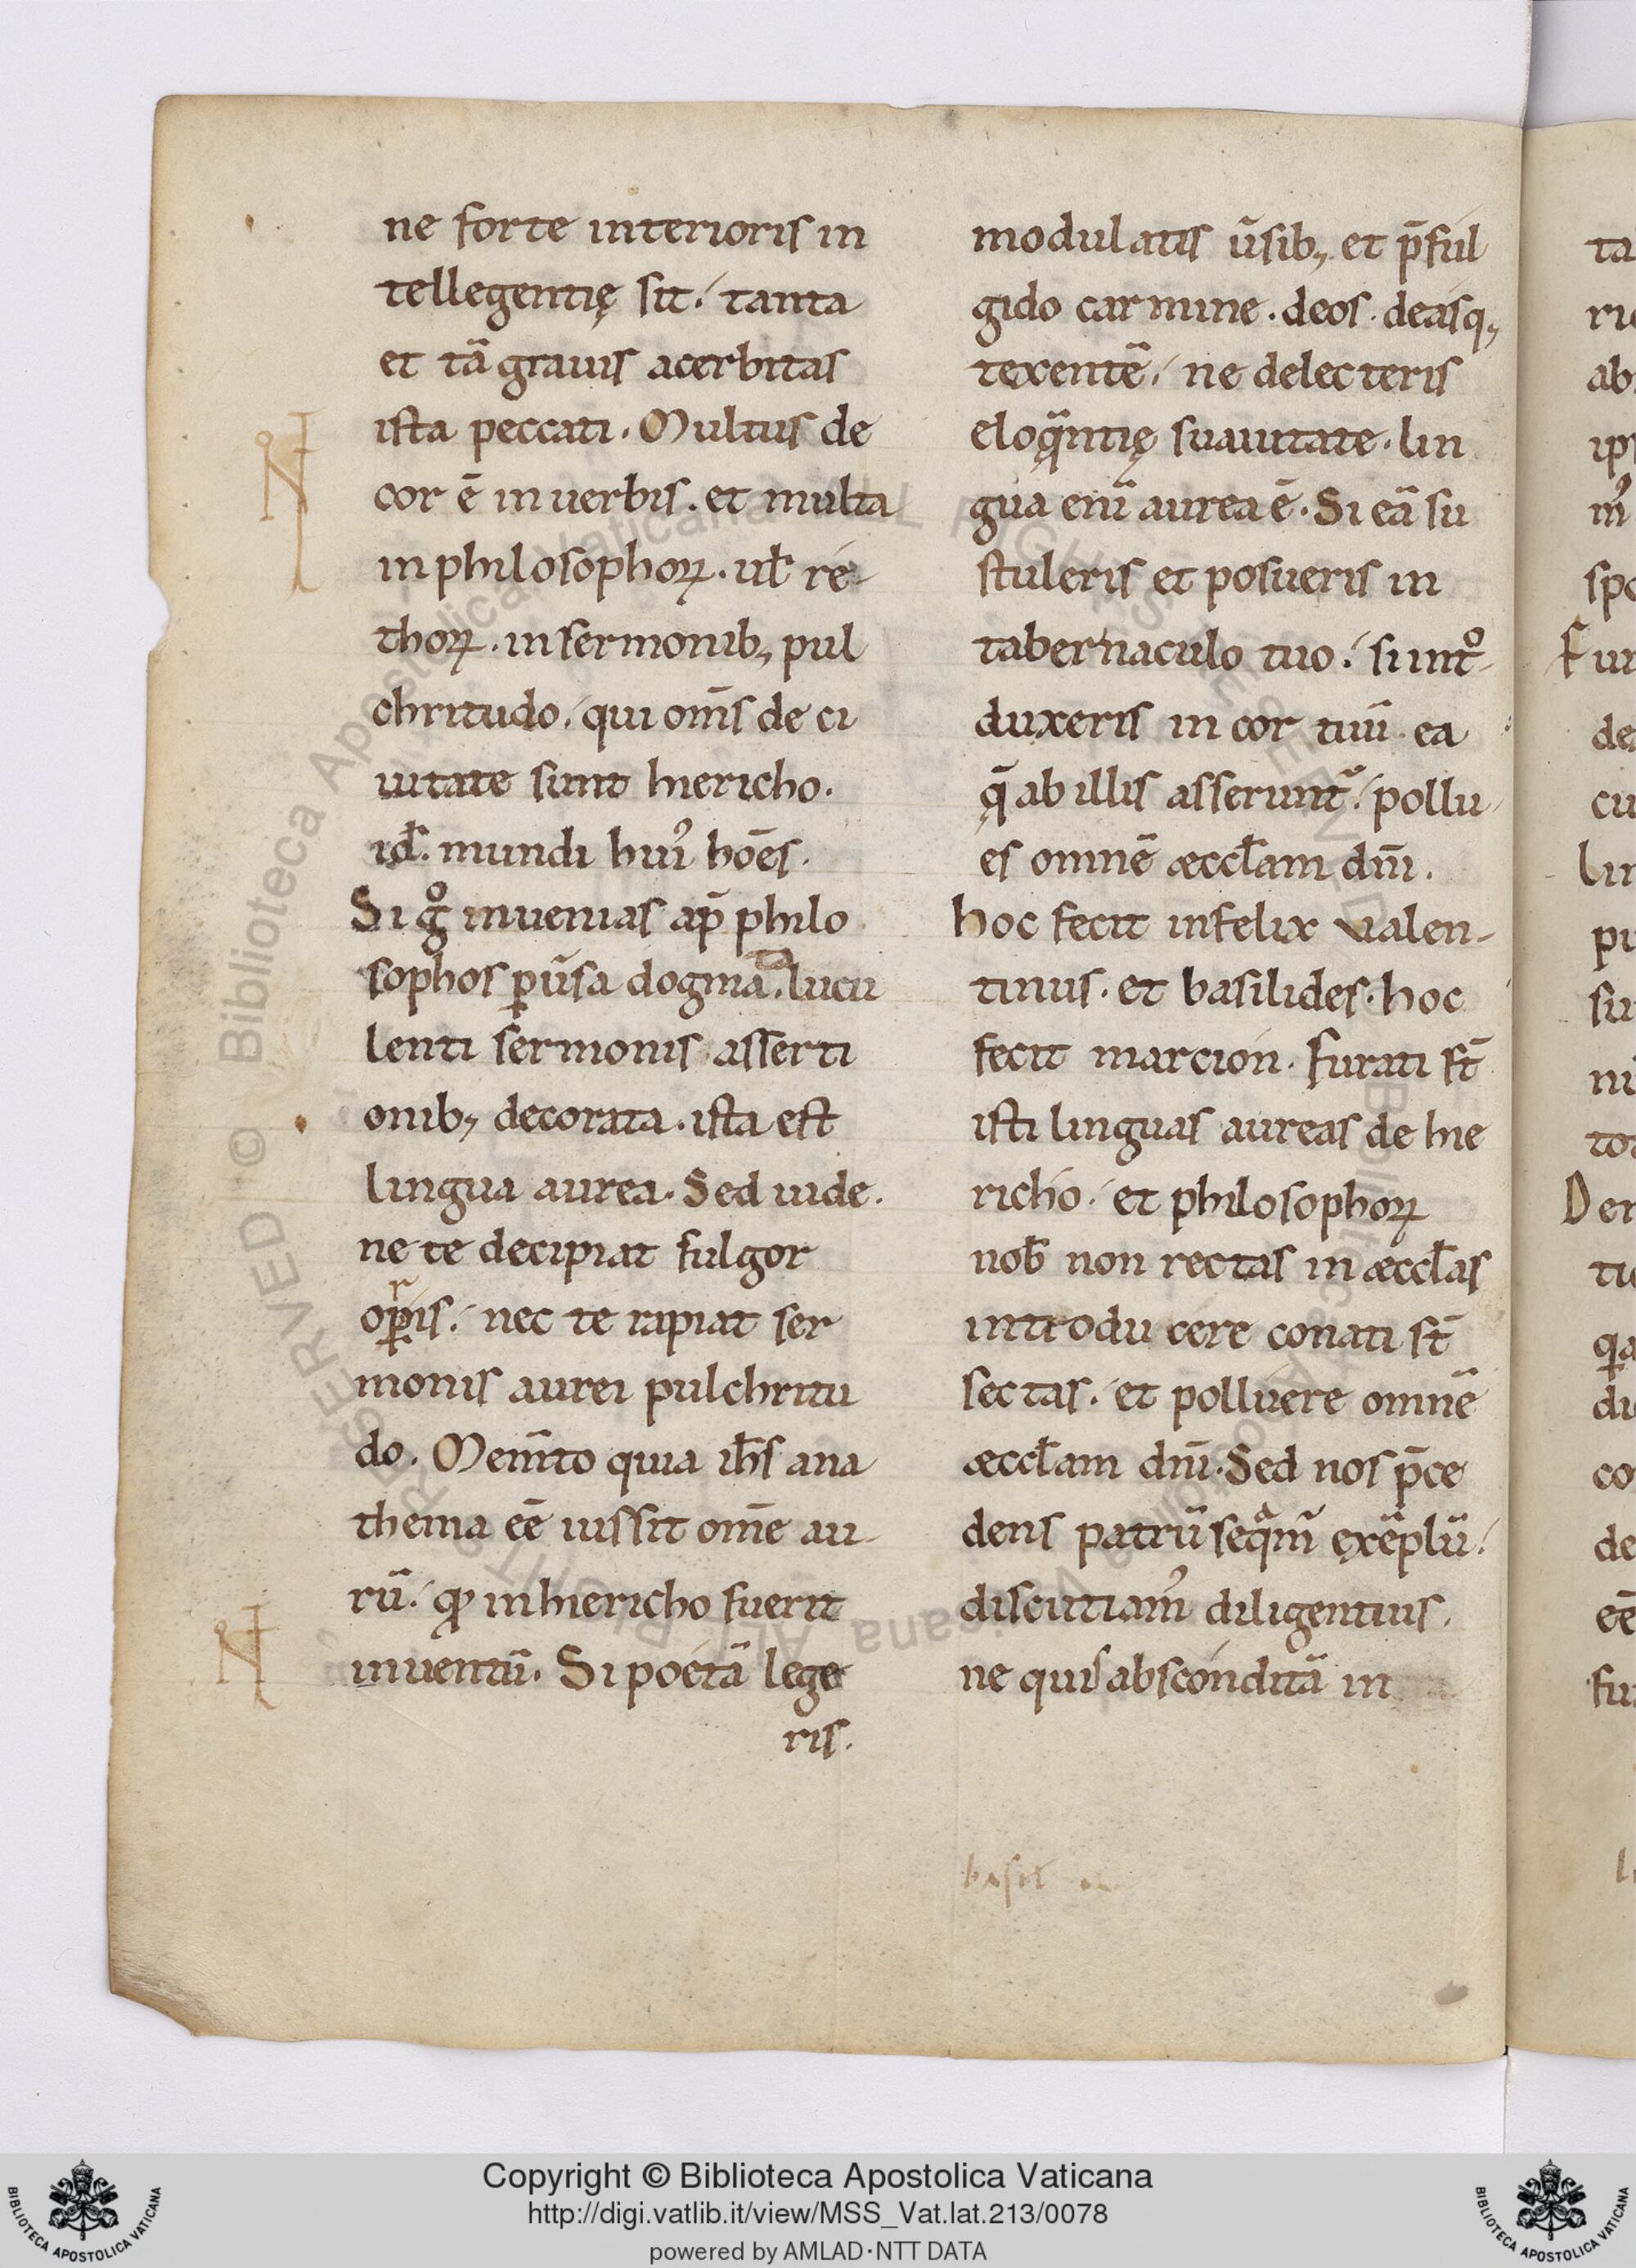 ne forte interioris in
tellegentię sit. tanta
et tā grauis acerbitas
ista peccati. Multus de
cor ē in uerbis. et multa
in philosophoꝝ. ul̄ re
thoꝝ. in sermonib; pul
chritudo. qui om̄s de ci
uitate sunt hiericho.
id̄. mundi huiꝰ hōes.
Si gͦ inuenias ap̄ philo
sophos ꝑuersa dogmata. lucu
lenti sermonis asserti
onib; decorata. ista est
lingua aurea. Sed uide.
ne te decipiat fulgor
oꝑis. nec te rapiat ser
monis aurei pulchritu
do. Mem̄to quia ih̄s ana
thema eē iussit om̄e au
rū. qđ in hiericho fuerit
inuentū. Si poetā lege
ris.
modulatis ūsib; et p̄ful
gido carmine. deos. deasq;
texentē. ne delecteris
eloq̄ntię suauitate. lin
gua enī aurea ē. Si eā su
stuleris et posueris in
tabernaculo tuo. si intͦ
duxeris in cor tuū ea
q̄ ab illis asserunt᷑. pollu
es omnē æccl̄am dn̄i.
hoc fecit infelix ualen-
tinus. et basilides. hoc
fecit marcion. furati st̄
isti linguas aureas de hie
richo. et philosophoꝝ
nob̄ non rectas in æccl̄as
introducere conati st̄
sectas. et polluere omnē
æccl̄am dn̄i. Sed nos p̄ce
dens patrū seqͣm̄ exēplū.
discutiamꝰ diligentius.
ne quis absconditā in
N
N
ta
ab
de
cu
lin
co
de
Copyright © Biblioteca Apostolica Vaticana
http://digi.vatlib.it/view/MSS_Vat.lat.213/0078
powered by AMLAD·NTT DATA
BIBLIOTECA APOSTOLICA VATICANA
BIBLIOTECA APOSTOLICA VATICANA